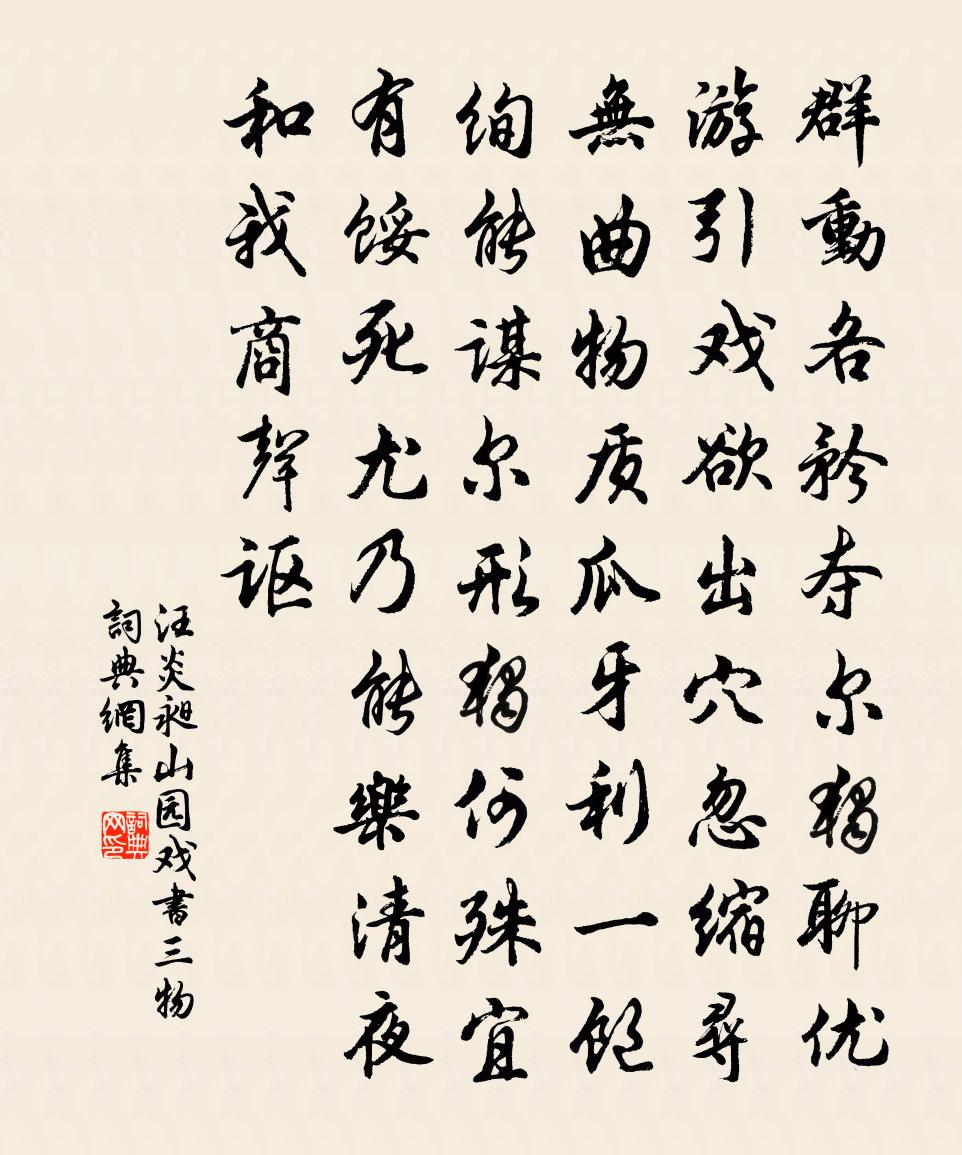 群動各矜夺尔獨聊优
游引戏欲出穴忽缩尋
無曲物质瓜牙利一饱
徇能谋尔形獨何殊宜
有馁死尤乃能樂清夜
和我商聲讴
汪炎昶山园戏书三物
詞典網集
詞典网印